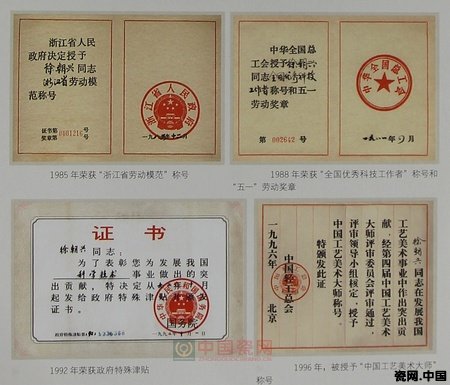 浙江省人民
政府决定授予
徐朝兴同志
浙江省劳动模
范称号
证书第
奖章第 0401216 号
浙江省人民政府
一九八五年十二月
1985年荣获“浙江省劳动模范”称号
中华全国总
工会授予徐朝兴
同志全国优秀科技
工作者称号和五一
劳动奖章
第 002642 号
中华全国总工会
1988年荣获“全国优秀科技工作者”称号和
“五一”劳动奖章
证书
徐朝兴同志：
为了表彰您为发展我国
科学技术事业做出的突
出贡献，特决定从
起发给政府特殊津贴
证书。
国务院
政府特殊津贴第
1992年荣获政府特殊津贴
徐朝兴同志在发展我国
工艺美术事业中作出突出贡
献，经第四届中国工艺美术
大师评审委员会评审通过，
评审领导小组核定，授予
中国工艺美术大师称号
特颁发此证
中国轻工总会
北京
一九九六年
1996年，被授予“中国工艺美术大师”
称号
中国瓷网
瓷网.中国